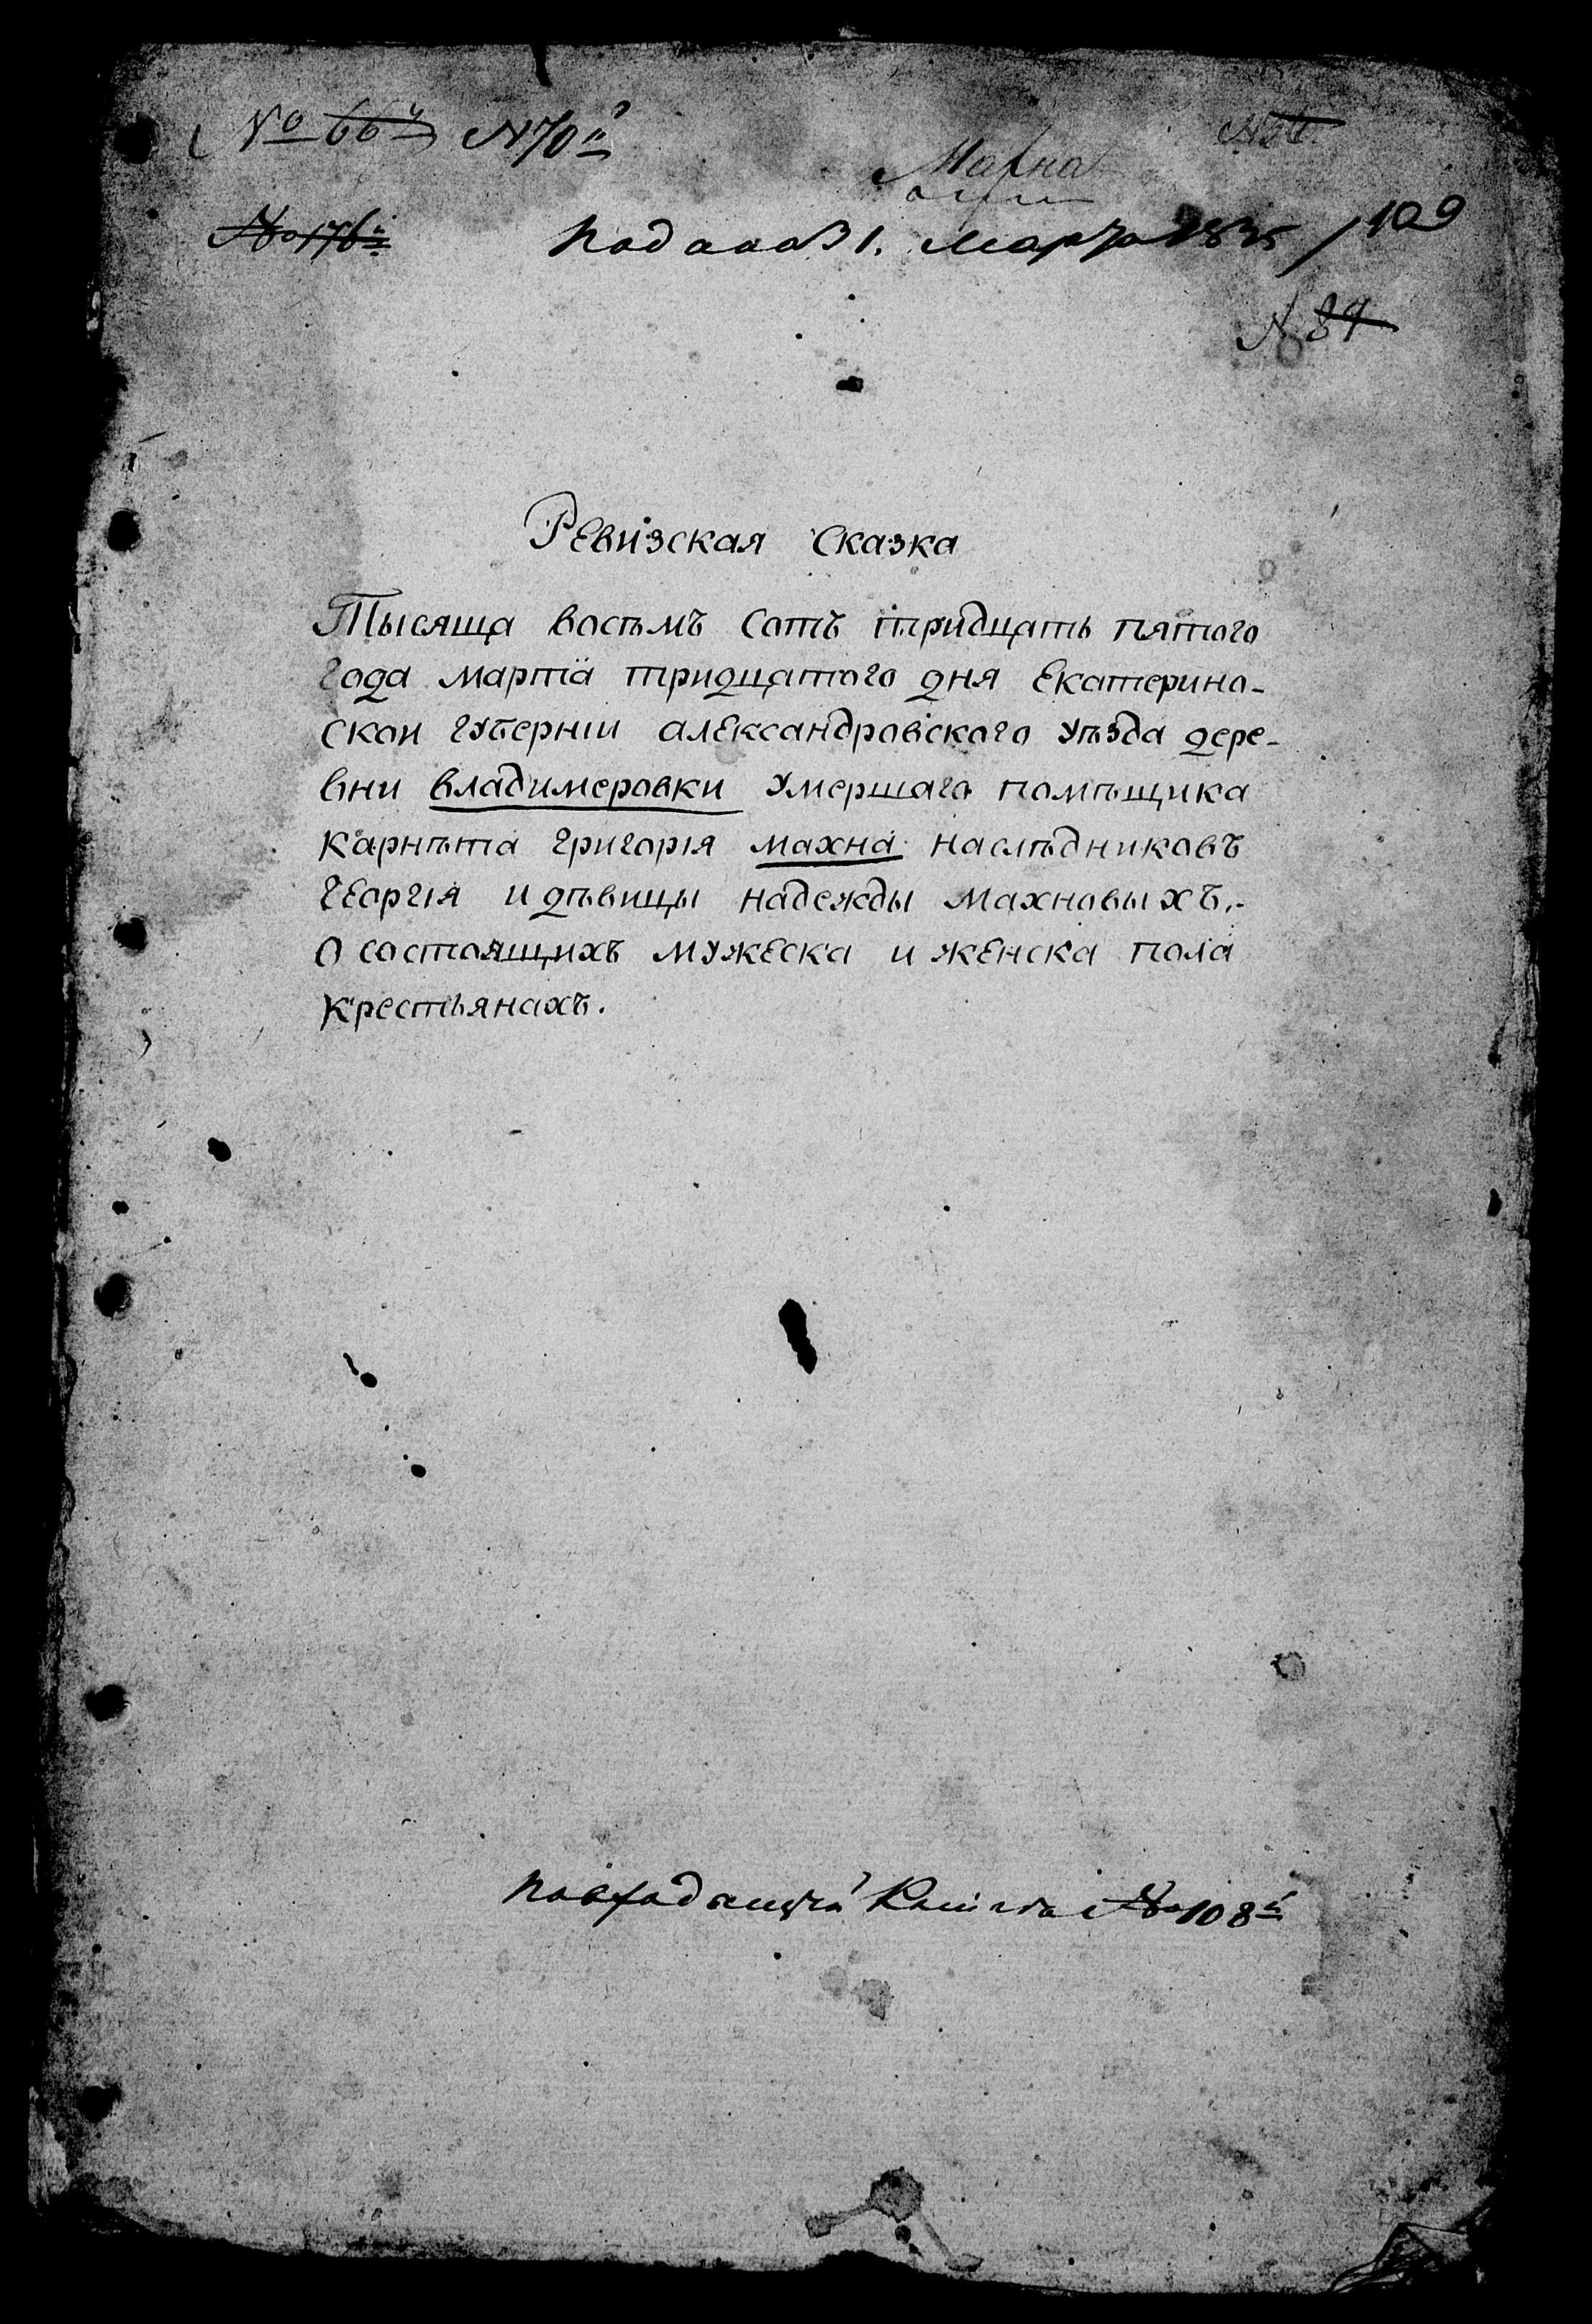 № 66й N 70й
Махна
№ 176й Подана 31. Марта 1835 / 109
N 84
Ревизская Сказка
Тысяща восъмъ Сотъ тридцать пятого
года марта тридцатого дня Екатерино-
скои губерніи александровского уѣзда дере-
вни владимеровки умершаго помѣщика
карнѣта григорія махна наслѣдниковъ
георгія и дѣвицы надежды махновыхъ.-
О состоящихъ мужеска и женска пола
крестьянахъ.
По входящей Книге № 108й